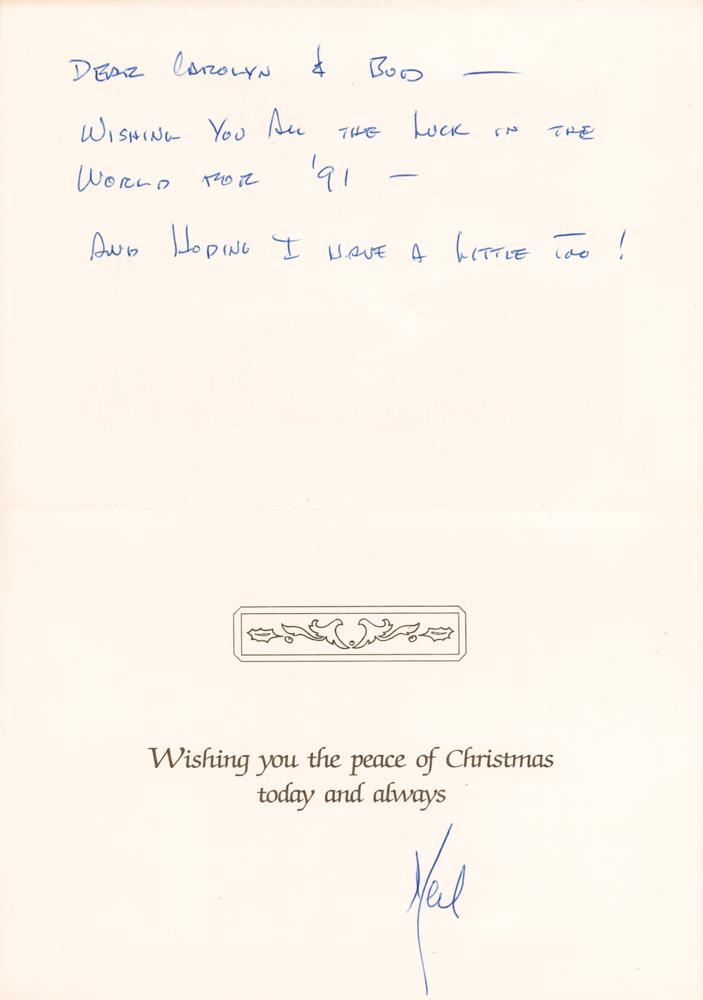 DEAR CAROLYN & BUD —
WISHING YOU ALL THE LUCK IN THE
WORLD FOR '91 —
AND HOPING I HAVE A LITTLE TOO!
Wishing you the peace of Christmas
today and always
Neil